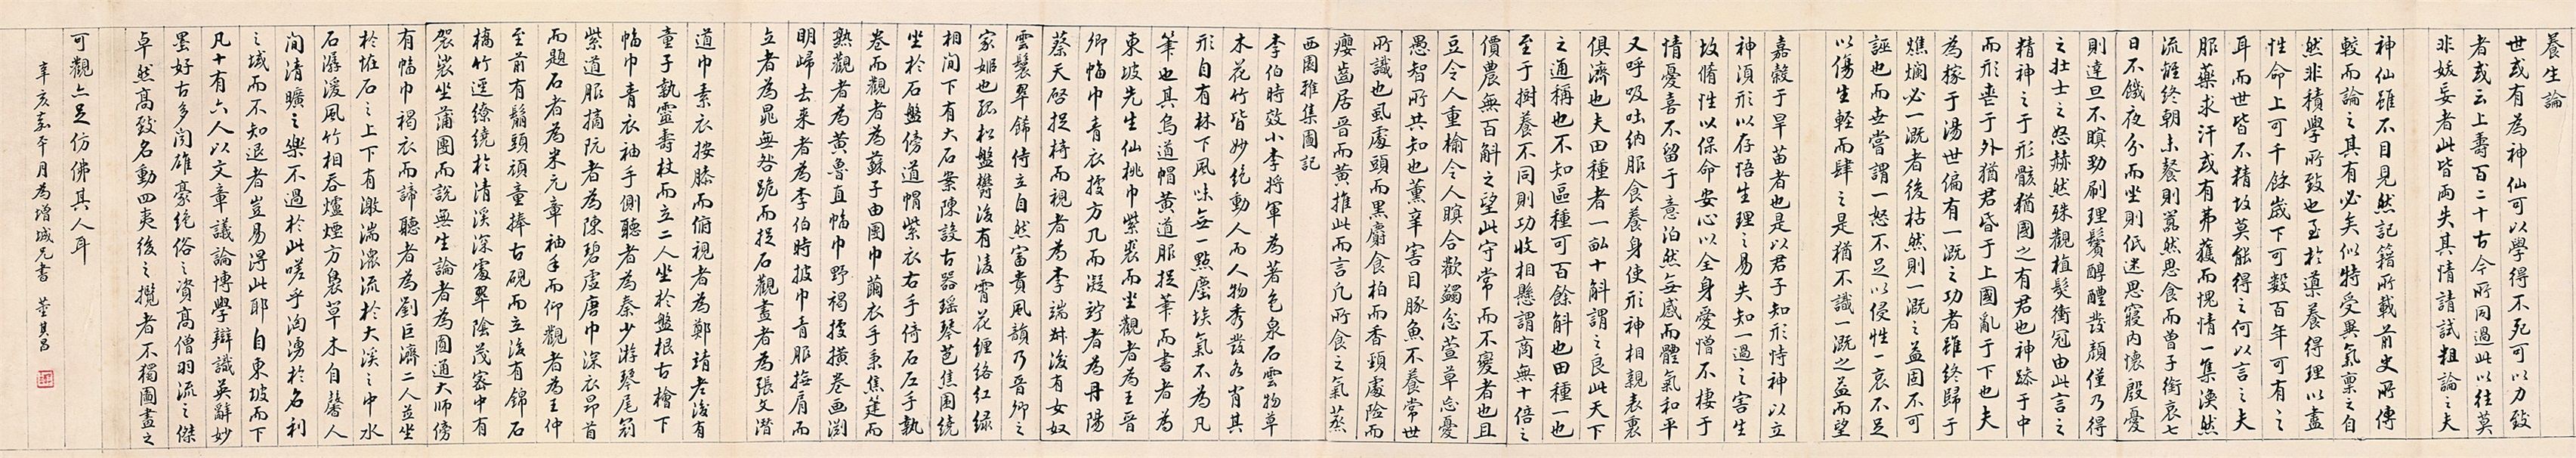 養生論
世或有為神仙可以學得不死可以力致
者或云上壽百二十古今所同過此以往莫
非妖妄者此皆兩失其情請試粗論之夫
神仙雖不目見然記籍所載前史所傳
較而論之其有必矣似特受異氣稟之自
然非積學所致也至於導養得理以盡
性命上可千餘歲下可數百年可有之
耳而世皆不精故莫能得之何以言之夫
服藥求汗或有弗獲而愧情一集渙然
流離終朝未餐則囂然思食而曾子銜哀七
日不饑夜分而坐則低迷思寢內懷殷憂
則達旦不瞑勁刷理鬢醇醴發顏僅乃得
之壯士之怒赫然殊觀植髮衝冠由此言之
精神之于形骸猶國之有君也神躁于中
而形喪于外猶君昏于上國亂于下也夫
為稼于湯世偏有一溉之功者雖終歸于
燋爛必一溉者後枯然則一溉之益固不可
誣也而世嘗謂一怒不足以侵性一哀不足
以傷生輕而肆之是猶不識一溉之益而望
嘉穀于旱苗者也是以君子知形恃神以立
神須形以存悟生理之易失知一過之害生
故脩性以保命安心以全身愛憎不棲于
情憂喜不留于意泊然無感而體氣和平
又呼吸吐納服食養身使形神相親表裏
俱濟也夫田種者一畝十斛謂之良此天下
之通稱也不知區種可百餘斛也田種一也
至于樹養不同則功收相懸謂商無十倍之
價農無百斛之望此守常而不變者也且
豆令人重榆令人瞑合歡蠲忿萱草忘憂
愚智所共知也薰辛害目豚魚不養常世
所識也虱處頭而黑麝食柏而香頸處險而
癭齒居晉而黃推此而言凡所食之氣蒸
西園雅集圖記
李伯時效小李將軍為著色泉石雲物草
木花竹皆妙絕動人而人物秀發各肖其
形自有林下風味無一點塵埃氣不為凡
筆也其烏道帽黃道服捉筆而書者為
東坡先生仙桃巾紫裘而坐觀者為王晉
卿幅巾青衣據方几而凝竚者為丹陽
蔡天啓捉椅而視者為李端叔後有女奴
雲鬟翠飾侍立自然富貴風韻乃晉卿之
家姬也孤松盤鬱後有淩霄花纏絡紅綠
相間下有大石案陳設古器瑤琴芭蕉圍繞
坐於石盤傍道帽紫衣右手倚石左手執
卷而觀者為蘇子由團巾繭衣手秉蕉箑而
熟觀者為黃魯直幅巾野褐據橫卷画淵
明歸去来者為李伯時披巾青服撫肩而
立者為晁無咎跪而捉石觀畫者為張文潛
道巾素衣按膝而俯視者為鄭靖老後有
童子執靈壽杖而立二人坐於盤根古檜下
幅巾青衣袖手側聽者為秦少游琴尾冠
紫道服摘阮者為陳碧虛唐巾深衣昂首
而題石者為米元章袖手而仰觀者為王仲
至前有鬅頭頑童捧古硯而立後有錦石
橋竹逕繚繞於清溪深處翠陰茂密中有
袈裟坐蒲團而說無生論者為圓通大師傍
有幅巾褐衣而諦聽者為劉巨濟二人並坐
於怪石之上下有激湍潨流於大溪之中水
石潺湲風竹相吞爐煙方裊草木自馨人
間清曠之樂不過於此嗟乎洶湧於名利
之域而不知退者豈易得此耶自東坡而下
凡十有六人以文章議論博學辯識英辭妙
墨好古多聞雄豪絕俗之資高僧羽流之傑
卓然高致名動四夷後之攬者不獨圖畫之
可觀亦足仿佛其人耳
辛亥嘉平月為增城兄書 董其昌